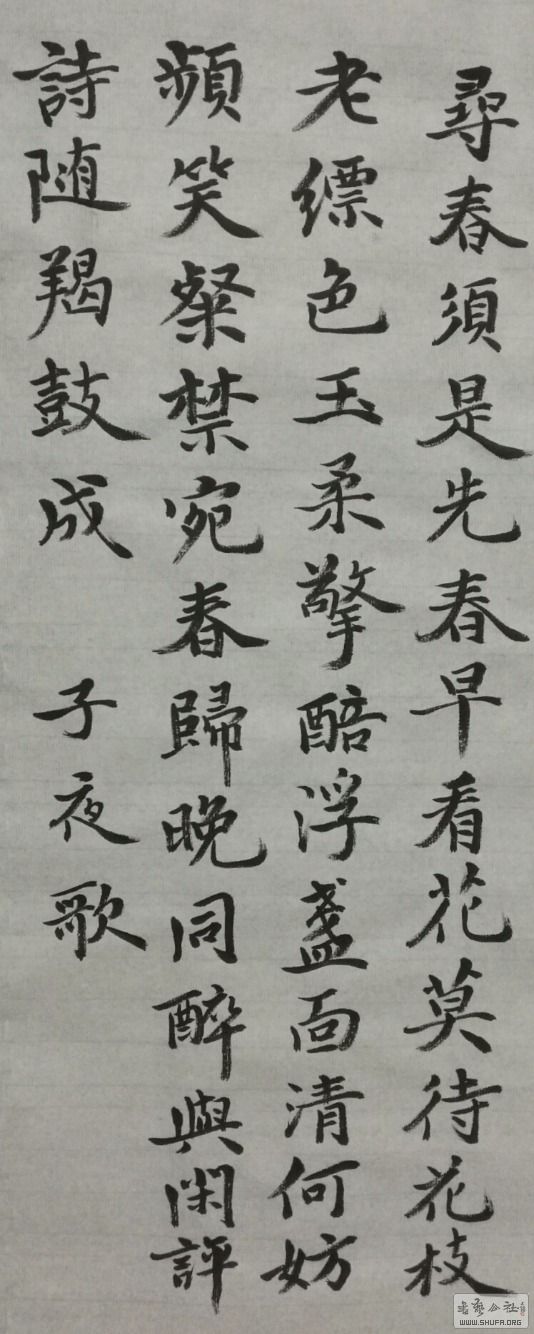 尋春須是先春早看花莫待花枝
老縹色玉柔擎醅浮盞面清何妨
頻笑粲禁宛春歸晚同醉與閑評
詩随羯鼓成 子夜歌
书艺公社
WWW.SHUFA.ORG